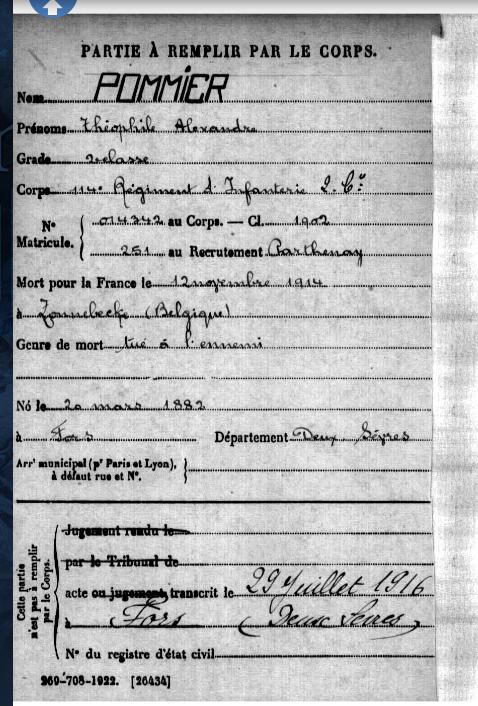 PARTIE À REMPLIR PAR LE CORPS.
Nom POMMIER
Prénoms Théophile Alexandre
Grade 2e classe
Corps 114e Régiment d'Infanterie 2. Cie
N° Matricule. { 014342 au Corps. — Cl. 1902
251 au Recrutement Parthenay
Mort pour la France le 12 novembre 1914
à Zonnebecke (Belgique)
Genre de mort tué à l'ennemi
Né le 20 mars 1882
à Fors Département Deux Sèvres
Arr' municipal (pr Paris et Lyon),
à défaut rue et N°. }
Cette partie
n'est pas à remplir
par le Corps.
Jugement rendu le
par le Tribunal de
acte ou jugement transcrit le 29 Juillet 1916
à Fors (Deux Sèvres)
N° du registre d'état civil
269-708-1922. [26434]